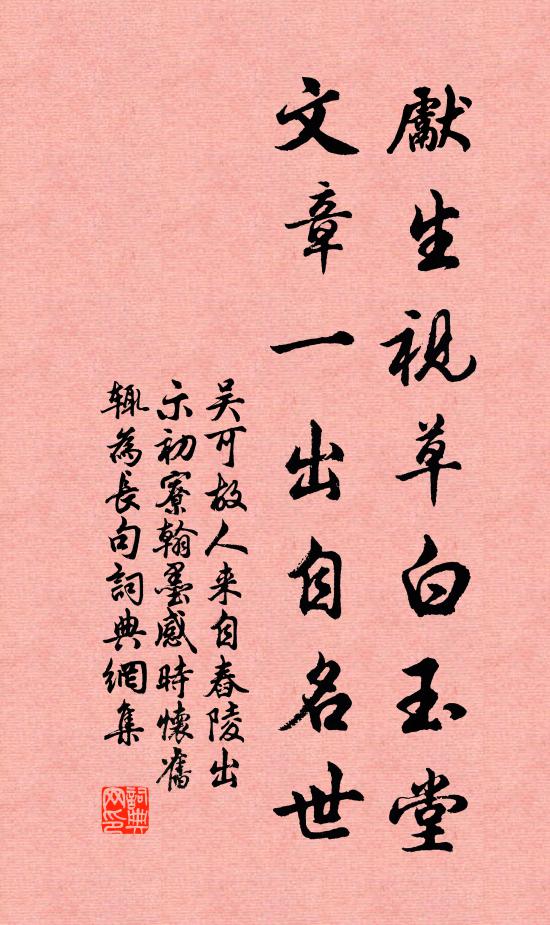 獻生視草白玉堂
文章一出自名世
吴可故人来自舂陵出
示初寮翰墨感時懷舊
輒為長句詞典網集
詞典
网印